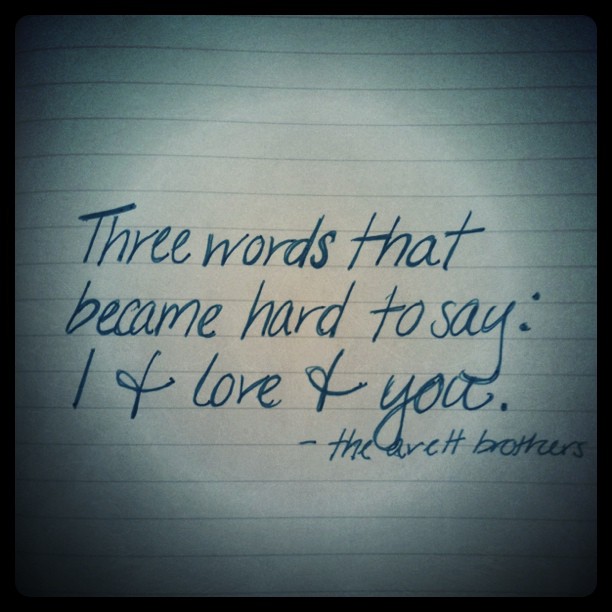 Three words that
became hard to say:
I & love & you.
- the avett brothers